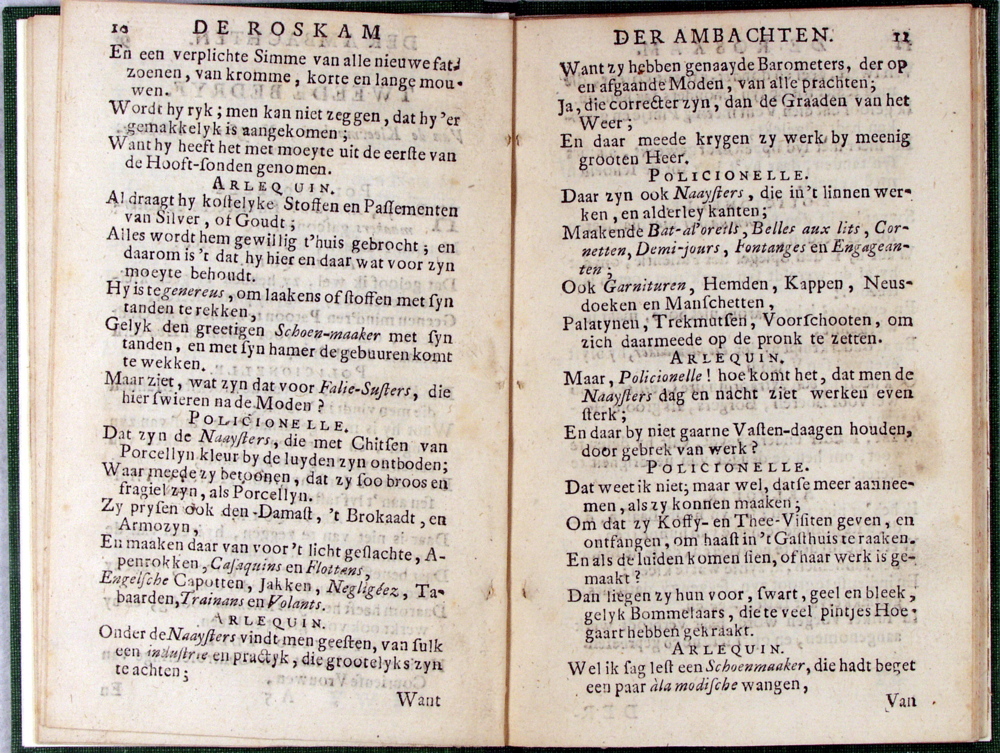 10 DE ROSKAM
En een verplichte Simme van alle nieuwe fat-
zoenen, van kromme, korte en lange mou-
wen.
Wordt hy ryk; men kan niet zeggen, dat hy 'er
gemakkelyk is aangekomen;
Want hy heeft het met moeyte uit de eerſte van
de Hooft-ſonden genomen.
ARLEQUIN.
Al draagt hy koſtelyke Stoffen en Paſſementen
van Silver, of Goudt;
Alles wordt hem gewillig t'huis gebrocht; en
daarom is 't dat hy hier en daar wat voor zyn
moeyte behoudt.
Hy is te genereus, om laakens of ſtoffen met ſyn
tanden te rekken,
Gelyk den greetigen Schoen-maaker met ſyn
tanden, en met ſyn hamer de gebuuren komt
te wekken.
Maar ziet, wat zyn dat voor Falie-Suſters, die
hier ſwieren na de Moden?
POLICIONELLE.
Dat zyn de Naayſters, die met Chitſen van
Porcellyn kleur by de luyden zyn ontboden;
Waar meede zy betoonen, dat zy ſoo broos en
fragiel zyn, als Porcellyn.
Zy pryſen ook den Damaſt, 't Brokaadt, en
Armozyn,
En maaken daar van voor 't licht geſlachte, A-
penrokken, Caſaquins en Flottans,
Engelſche Capotten, Jakken, Negligéez, Ta-
baarden, Trainans en Volants.
ARLEQUIN.
Onder de Naayſters vindt men geeſten, van ſulk
een industrie en practyk, die grootelyks zyn
te achten;
Want
DER AMBACHTEN. 11
Want zy hebben genaayde Barometers, der op
en afgaande Moden, van alle prachten;
Ja, die correcter zyn, dan de Graaden van het
Weer;
En daar meede krygen zy werk by meenig
grooten Heer.
POLICIONELLE.
Daar zyn ook Naayſters, die in 't linnen wer-
ken, en alderley kanten;
Maakende Bat-al'oreils, Belles aux lits, Cor-
netten, Demi-jours, Fontanges en Engagean-
ten;
Ook Garnituren, Hemden, Kappen, Neus-
doeken en Manſchetten,
Palatynen, Trekmutſen, Voorſchooten, om
zich daarmeede op de pronk te zetten.
ARLEQUIN.
Maar, Policionelle! hoe komt het, dat men de
Naayſters dag en nacht ziet werken even
ſterk;
En daar by niet gaarne Vaſten-daagen houden,
door gebrek van werk?
POLICIONELLE.
Dat weet ik niet; maar wel, datſe meer aannee-
men, als zy konnen maaken;
Om dat zy Koffy- en Thee-Viſiten geven, en
ontfangen, om haaſt in 't Gaſthuis te raaken.
En als de luiden komen ſien, of haar werk is ge-
maakt?
Dan liegen zy hun voor, ſwart, geel en bleek,
gelyk Bommelaars, die te veel pintjes Hoe-
gaart hebben gekraakt.
ARLEQUIN.
Wel ik ſag leſt een Schoenmaaker, die hadt beget
een paar àla modiſche wangen,
Van